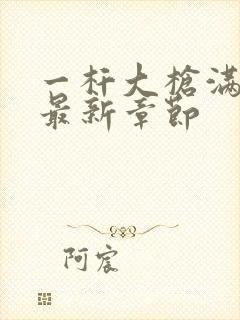 一杆大枪满
最新章节
阿宸